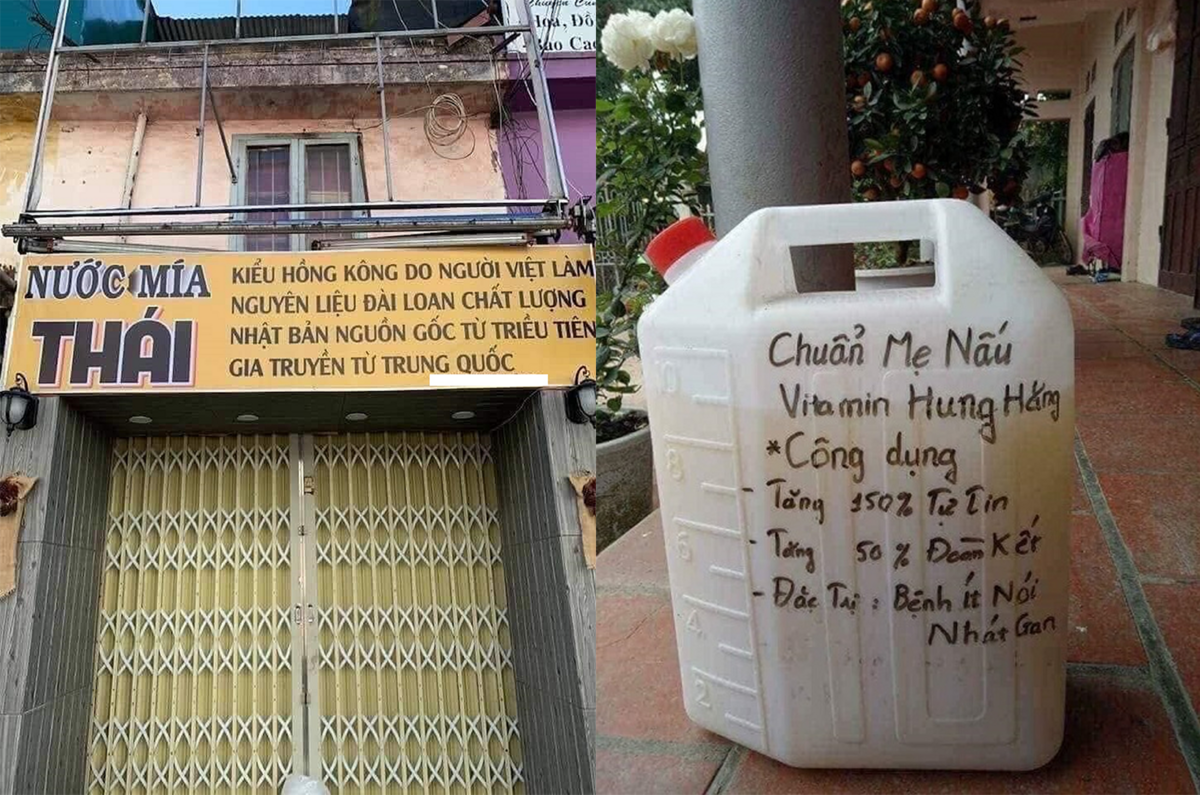 Hoa, Đồ
Bao Ca
NƯỚC MÍA
THÁI
KIỂU HỒNG KÔNG DO NGƯỜI VIỆT LÀM
NGUYÊN LIỆU ĐÀI LOAN CHẤT LƯỢNG
NHẬT BẢN NGUỒN GỐC TỪ TRIỀU TIÊN
GIA TRUYỀN TỪ TRUNG QUỐC
Chuẩn Mẹ Nấu
Vitamin Hung Hăng
*Công dụng
- Tăng 150% Tự Tin
- Tăng 50% Đoàn Kết
- Đặc Trị : Bệnh Ít Nói
Nhát Gan
10
8
6
4
2